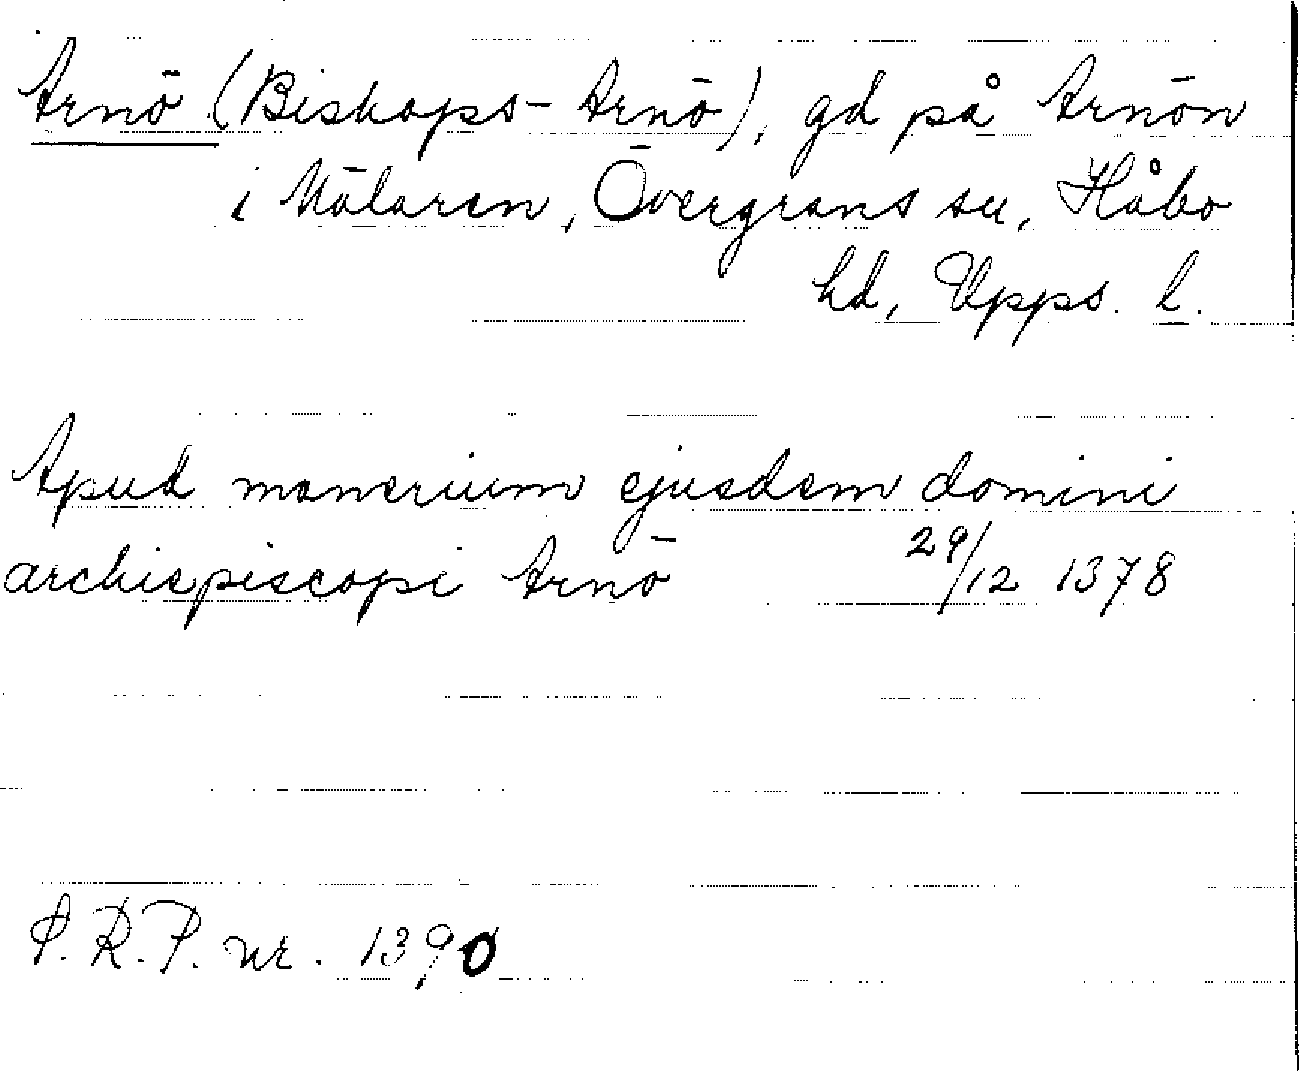 Arnö (Biskops-Arnö), gd på Arnön
i Mälaren, Övergrans sn, Håbo
hd, Upps. l.
Apud manerium ejusdem domini
archiepiscopi Arnö 29/12 1378
S.R.P. nr. 1390